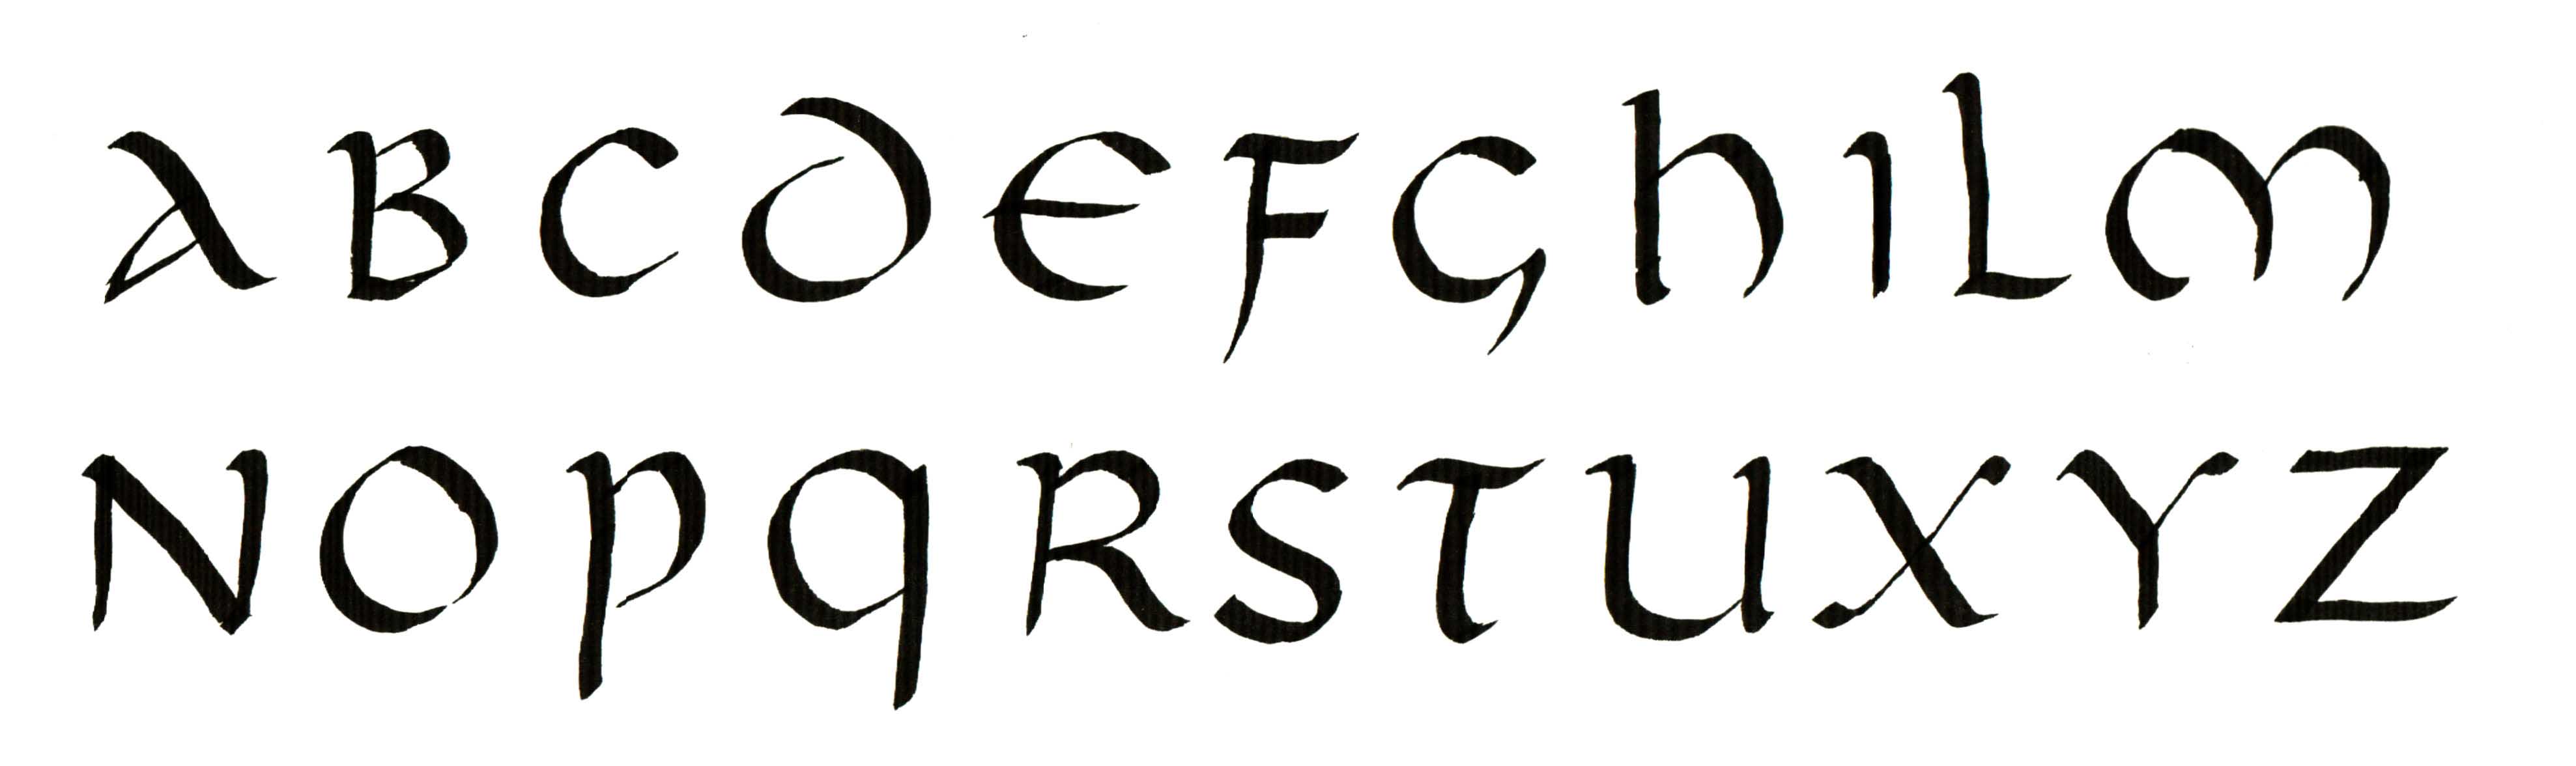 A B C D E F G H I L M
N O P Q R S T U X Y Z